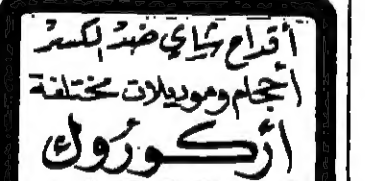 أقداح شاي ضد الكسر
أحجام وموديلات مختلفة
أركوروك